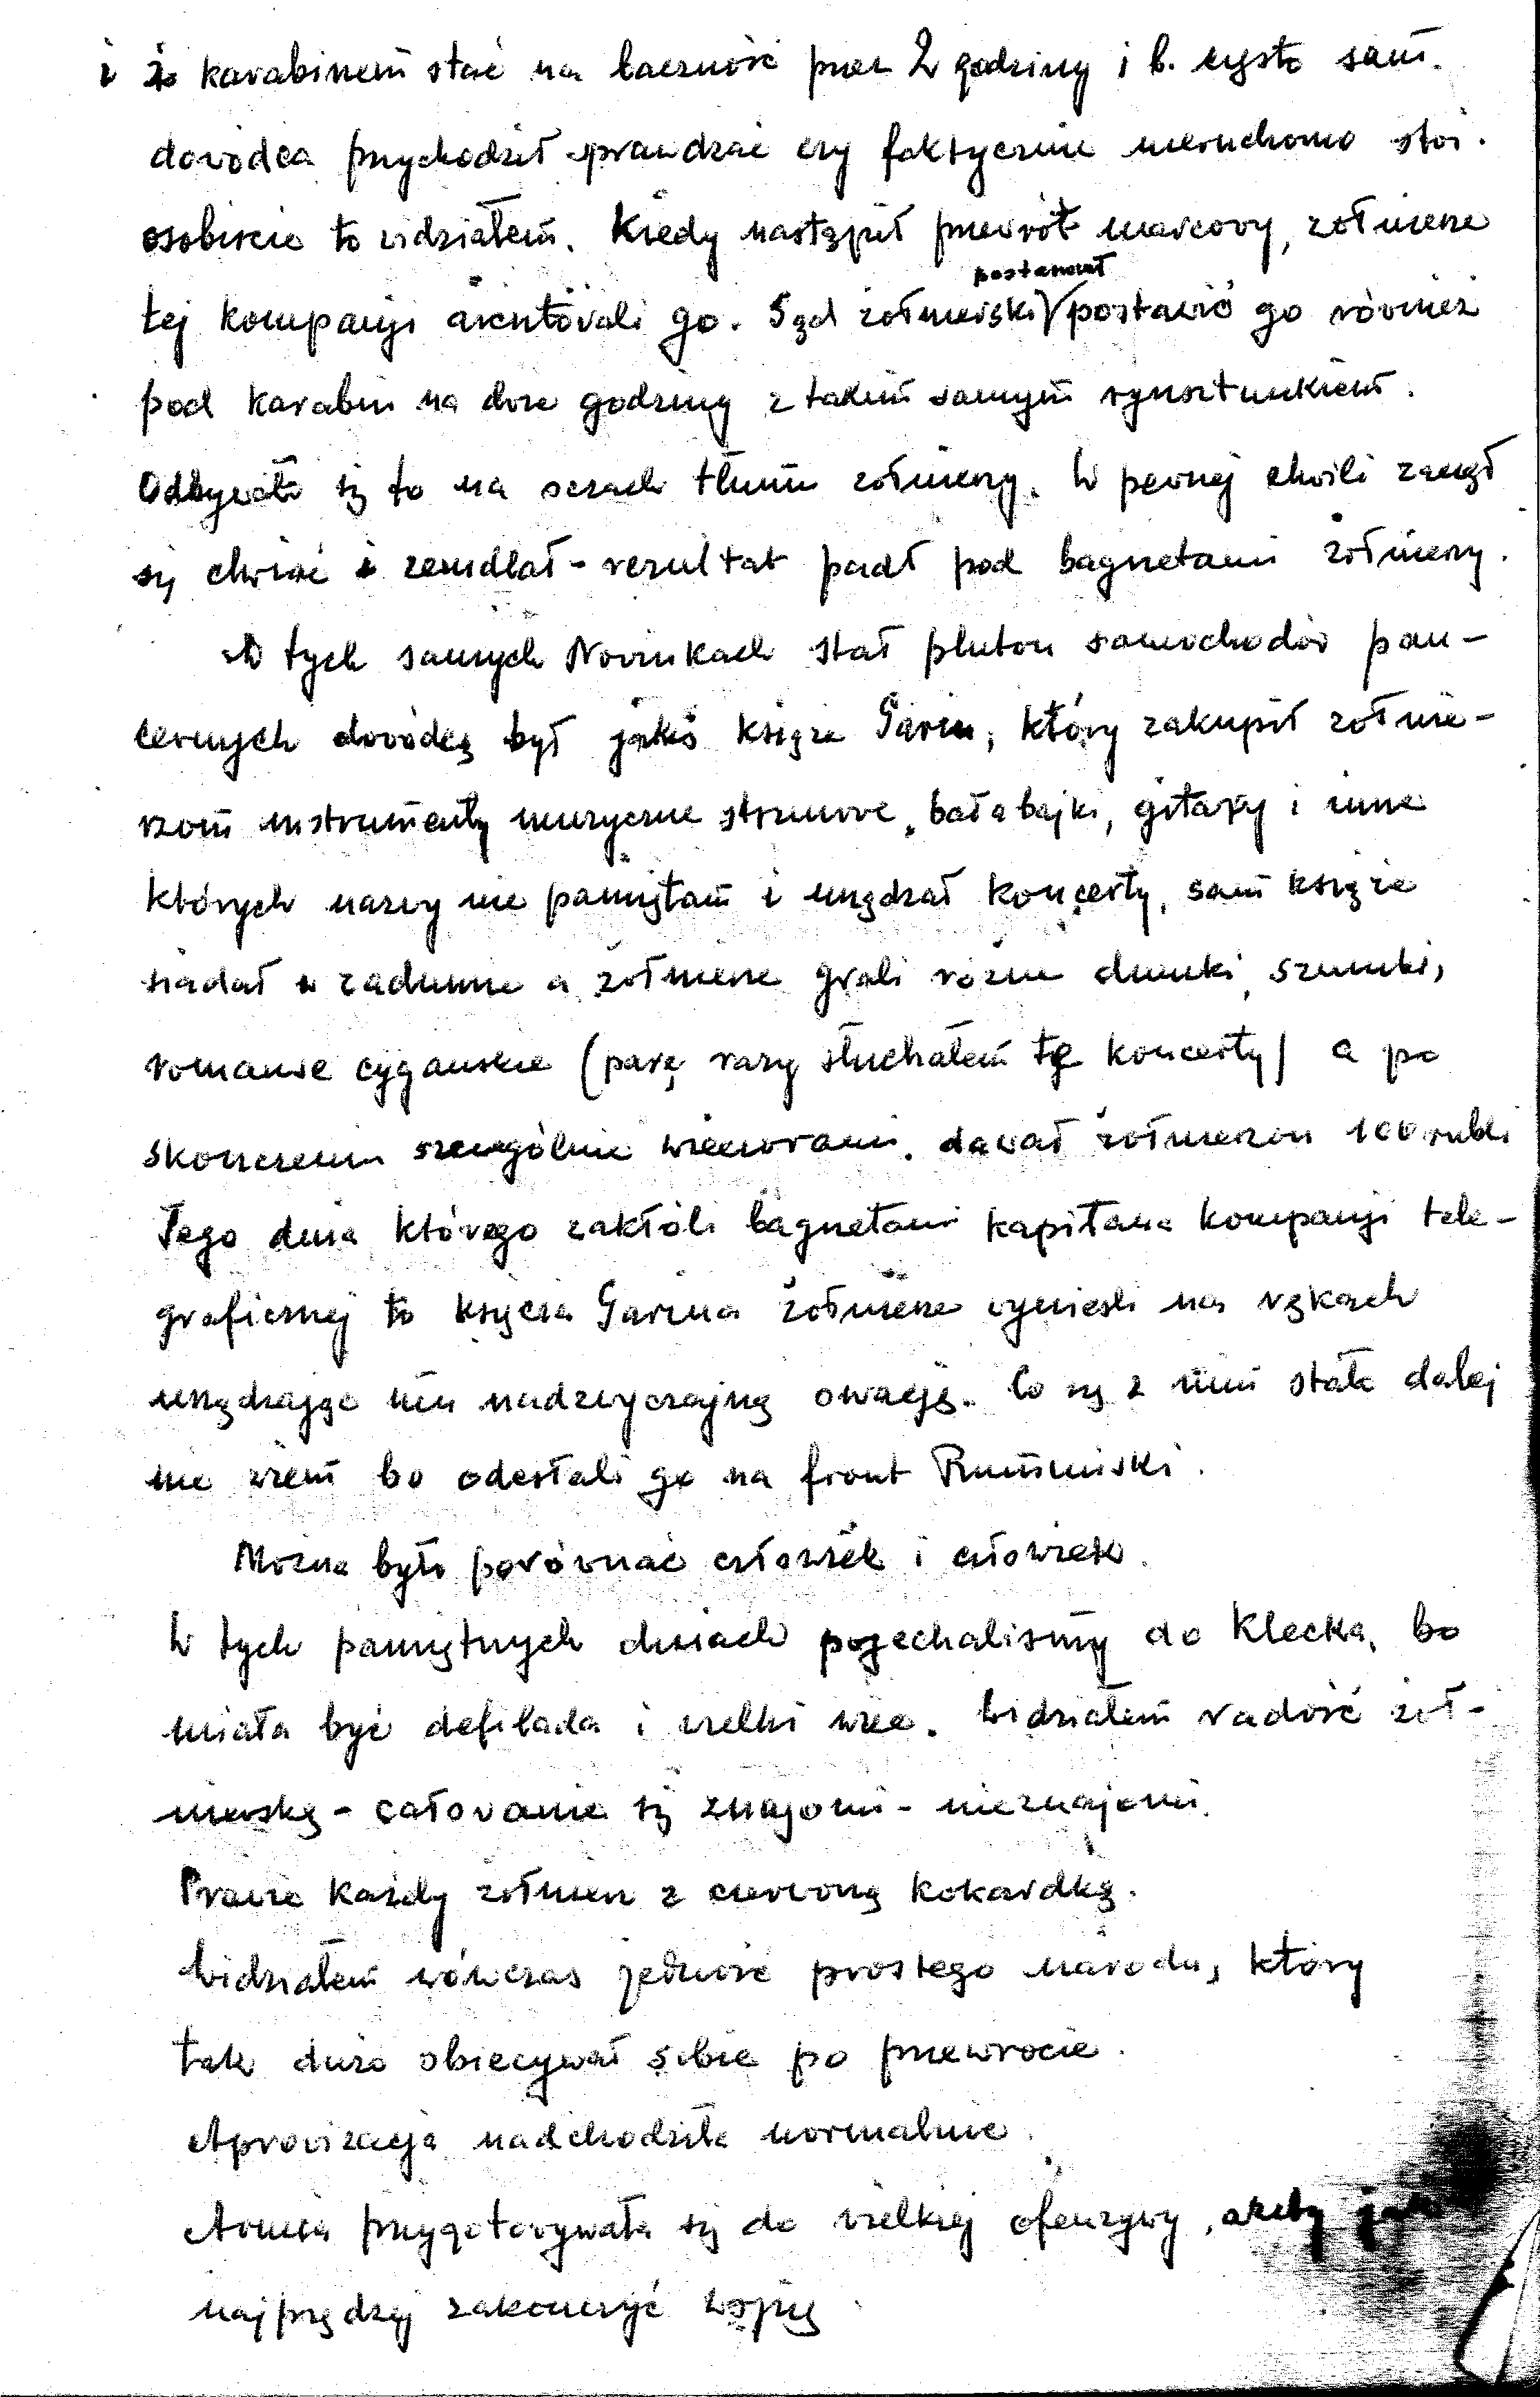 i z karabinem stać na baczność przez 2 godziny i b. często sam.
dowódca przychodził sprawdzać czy faktycznie nieruchomo stoi.
osobiście to widziałem. Kiedy nastąpił przewrót marcowy, żołnierze
tej kompanji aresztowali go. Sąd żołnierski postanowił postawić go również
pod karabin na dwie godziny z takim samym rynsztunkiem.
Odbywało się to na oczach tłumu żołnierzy. W pewnej chwili zaczął
się chwiać i zemdlał - rezultat padł pod bagnetami żołnierzy.
W tych samych Nowinkach stał pluton samochodów pan-
cernych dowódcą był jakiś książe Garin, który zakupił żołnie-
rzom instrumenty muzyczne strunowe, bałabajki, gitary i inne
których nazwy nie pamiętam i urządzał koncerty, sam książe
siadał w zadumie a żołnierze grali różne dumki, szumki,
romanse cygańskie (parę razy słuchałem te koncerty) a po
skończeniu szczególnie wieczorami, dawał żołnierzom 100 rubli
Tego dnia którego zakłóli bagnetami kapitana kompanji tele-
graficznej to księcia Garina żołnierze wynieśli na rękach
urządzając mu nadzwyczajną owację. Co się z nim stało dalej
nie wiem bo odesłali go na front Rumuński.
Można było porównać człowiek i człowiek.
W tych pamiętnych dniach pojechaliśmy do Klecka, bo
miała być defilada i wielki wiec. Widziałem radość żoł-
nierską - całowanie się znajomi - nieznajomi.
Prawie każdy żołnierz z czerwoną kokardką.
Widziałem wówczas jedność prostego narodu, który
tak dużo obiecywał sobie po przewrocie.
Aprowizacja nadchodziła normalnie.
Armia przygotowywała się do wielkiej ofenzywy, ażeby jak
najprędzej zakończyć wojnę